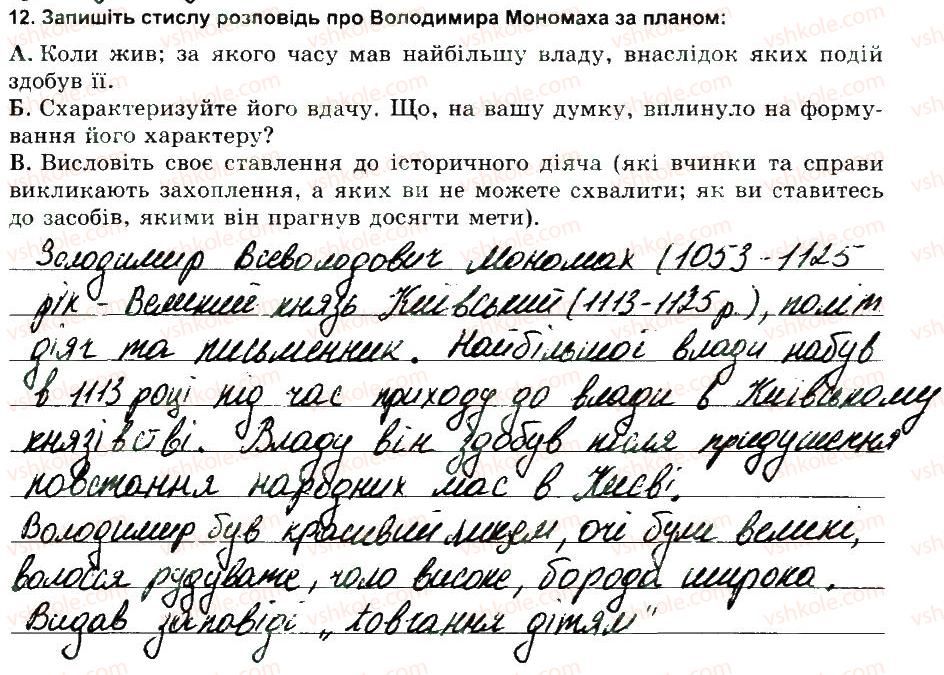 12. Запишіть стислу розповідь про Володимира Мономаха за планом:
А. Коли жив; за якого часу мав найбільшу владу, внаслідок яких подій
здобув її.
Б. Схарактеризуйте його вдачу. Що, на вашу думку, вплинуло на форму-
вання його характеру?
В. Висловіть своє ставлення до історичного діяча (які вчинки та справи
викликають захоплення, а яких ви не можете схвалити; як ви ставитесь
до засобів, якими він прагнув досягти мети).
Володимир Всеволодович Мономах (1053-1125
рік - Великий князь Київський (1113-1125 р.), політ
діяч та письменник. Найбільшої влади набув
в 1113 році під час приходу до влади в Київському
князівстві. Владу він здобув після придушення
повстання народних мас в Києві.
Володимир був красивий лицем, очі були великі,
волосся рудувате, чоло високе, борода широка.
Видав заповіді „Повчання дітям"